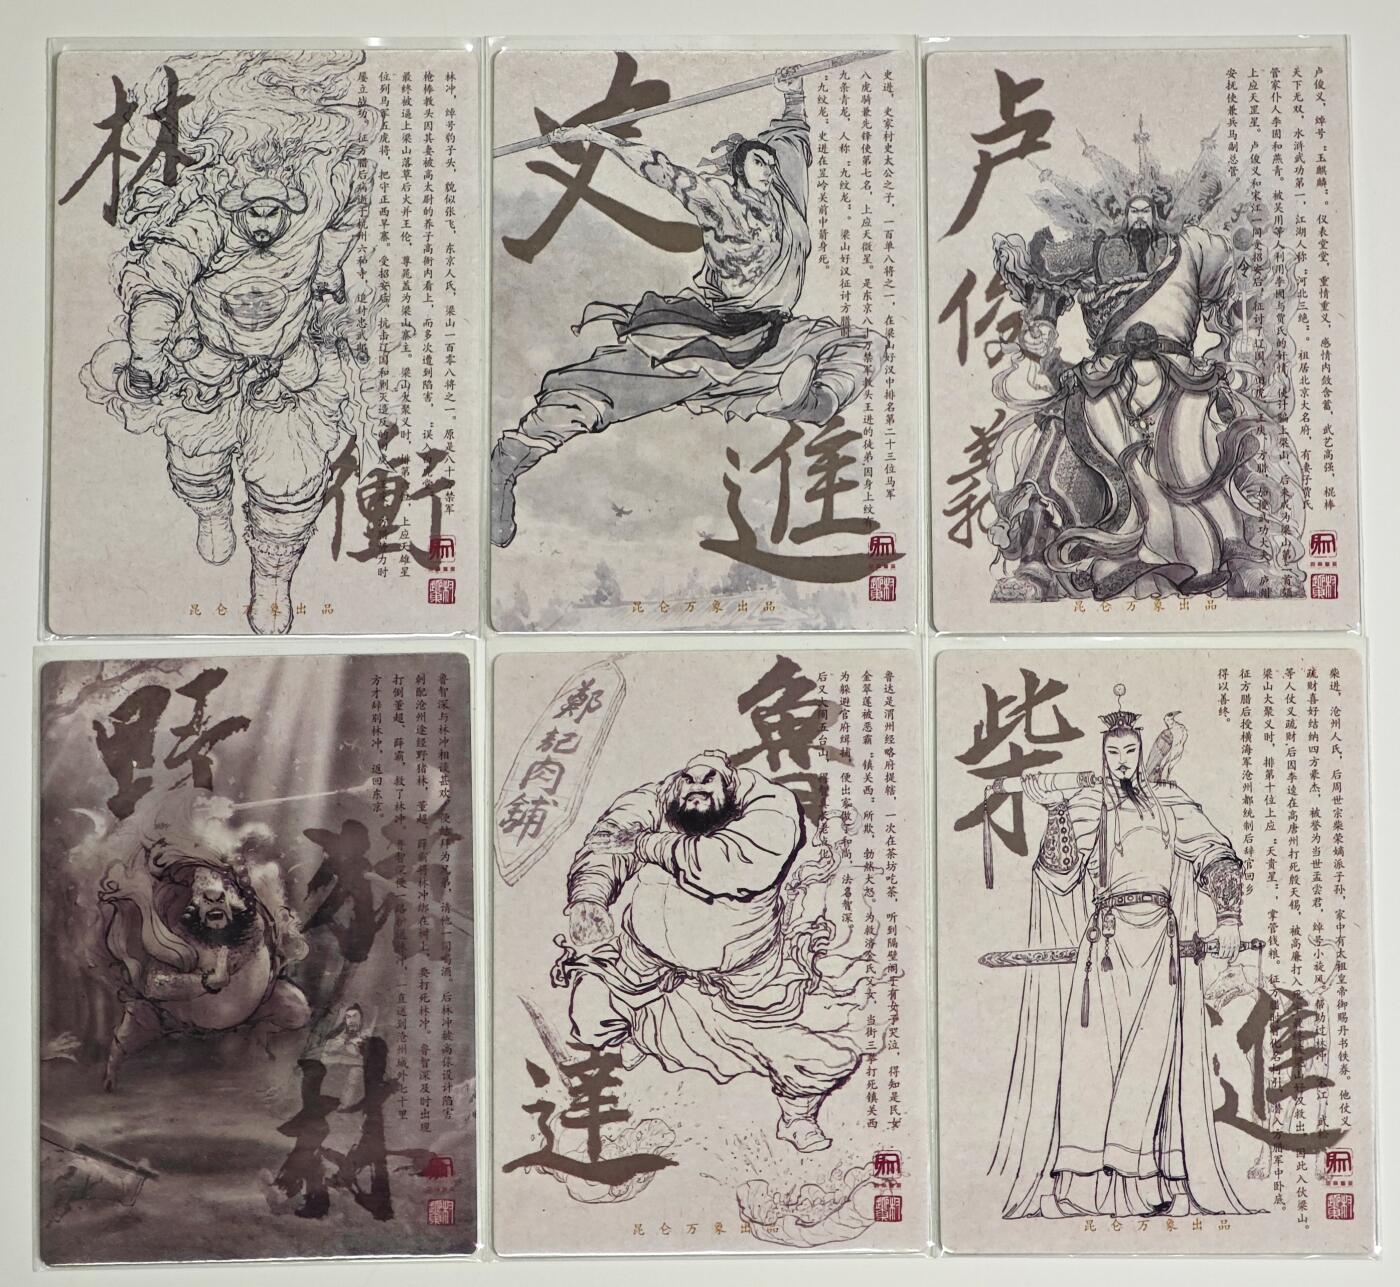 林
衝
林冲，绰号豹子头，貌似张飞，东京人氏，梁山一百零八将之一。原是八十
禁军
枪棒教头因其妻被高太尉的养子高衙内看上，而多次遭到陷害，
最终被逼上梁山落草后火并王伦，尊晁盖为梁山寨主。梁山大聚义时，
上应天雄星
位列马军五虎将，把守正西旱寨。受招安后，抗击辽国和剿灭造反的
力时
屡立战功。征方腊后病逝于杭州六和寺，追封忠武郎。
昆仑万象出品
史
進
史进，史家村史太公之子，一百单八将之一，在梁山好汉中排名第二十三位马军
八虎骑兼先锋使第七名，上应天微星。是东京八十万禁军教头王进的徒弟，因身上纹有
九条青龙，人称：九纹龙：。梁山好汉征讨方腊时
：九纹龙：史进在昱岭关前中箭身死。
昆仑万象出品
卢
俊
義
卢俊义，绰号：玉麒麟：。仪表堂堂，重情重义，感情内敛含蓄，武艺高强，棍棒
天下无双，水浒武功第一，江湖人称：河北三绝：。祖居北京大名府，有妻子贾氏
管家仆人李固和燕青。被吴用等人利用李固与贾氏的奸情，使计骗上梁山，后来成为梁山第二首领
上应天罡星。卢俊义和宋江一同受招安后，征讨了辽国、田虎、王庆、方腊，加授武功大夫、庐州
安抚使兼兵马副总管。
昆仑万象出品
野
猪
林
鲁智深与林冲相谈甚欢，便结拜为兄弟，请他一同喝酒。后林冲被高俅设计陷害
刺配沧州途经野猪林，董超、薛霸将林冲绑在树上，要打死林冲。鲁智深及时出现
打倒董超、薛霸，救了林冲。鲁智深便一路护送林冲，一直送到沧州城外七十里
方才辞别林冲，返回东京。
鄭記肉鋪
魯
達
鲁达是渭州经略府提辖，一次在茶坊吃茶，听到隔壁阁子有女子哭泣，得知是民女
金翠莲被恶霸：镇关西：所欺，勃然大怒。为救济金氏父女，当街三拳打死镇关西
为躲避官府缉捕，便出家做了和尚，法名智深。
后又大闹五台山，
昆仑万象出品
柴
進
柴进，沧州人氏，后周世宗柴荣嫡派子孙，家中有太祖皇帝御赐丹书铁券。他仗义
疏财喜好结纳四方豪杰，被誉为当世孟尝君，绰号小旋风，帮助过林冲、宋江、武松
等人仗义疏财，后因李逵在高唐州打死殷天锡，被高廉打入
救出，因此入伙梁山。
梁山大聚义时，排第十位上应：天贵星：，掌管钱粮。征
入方腊军中卧底。
征方腊后授横海军沧州都统制后辞官回乡
得以善终。
昆仑万象出品